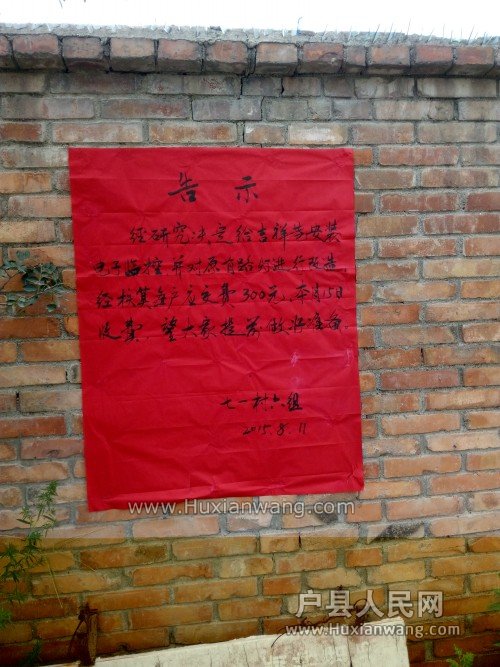 告示
经研究决定给吉祥苑安装
电子监控并对原有路灯进行改造
经核算每户应交费300元,本月15日
收齐,望大家提前做好准备。
七一村六组
2015.8.11
www.Huxianwang.com
户县人民网
www.Huxianwang.com